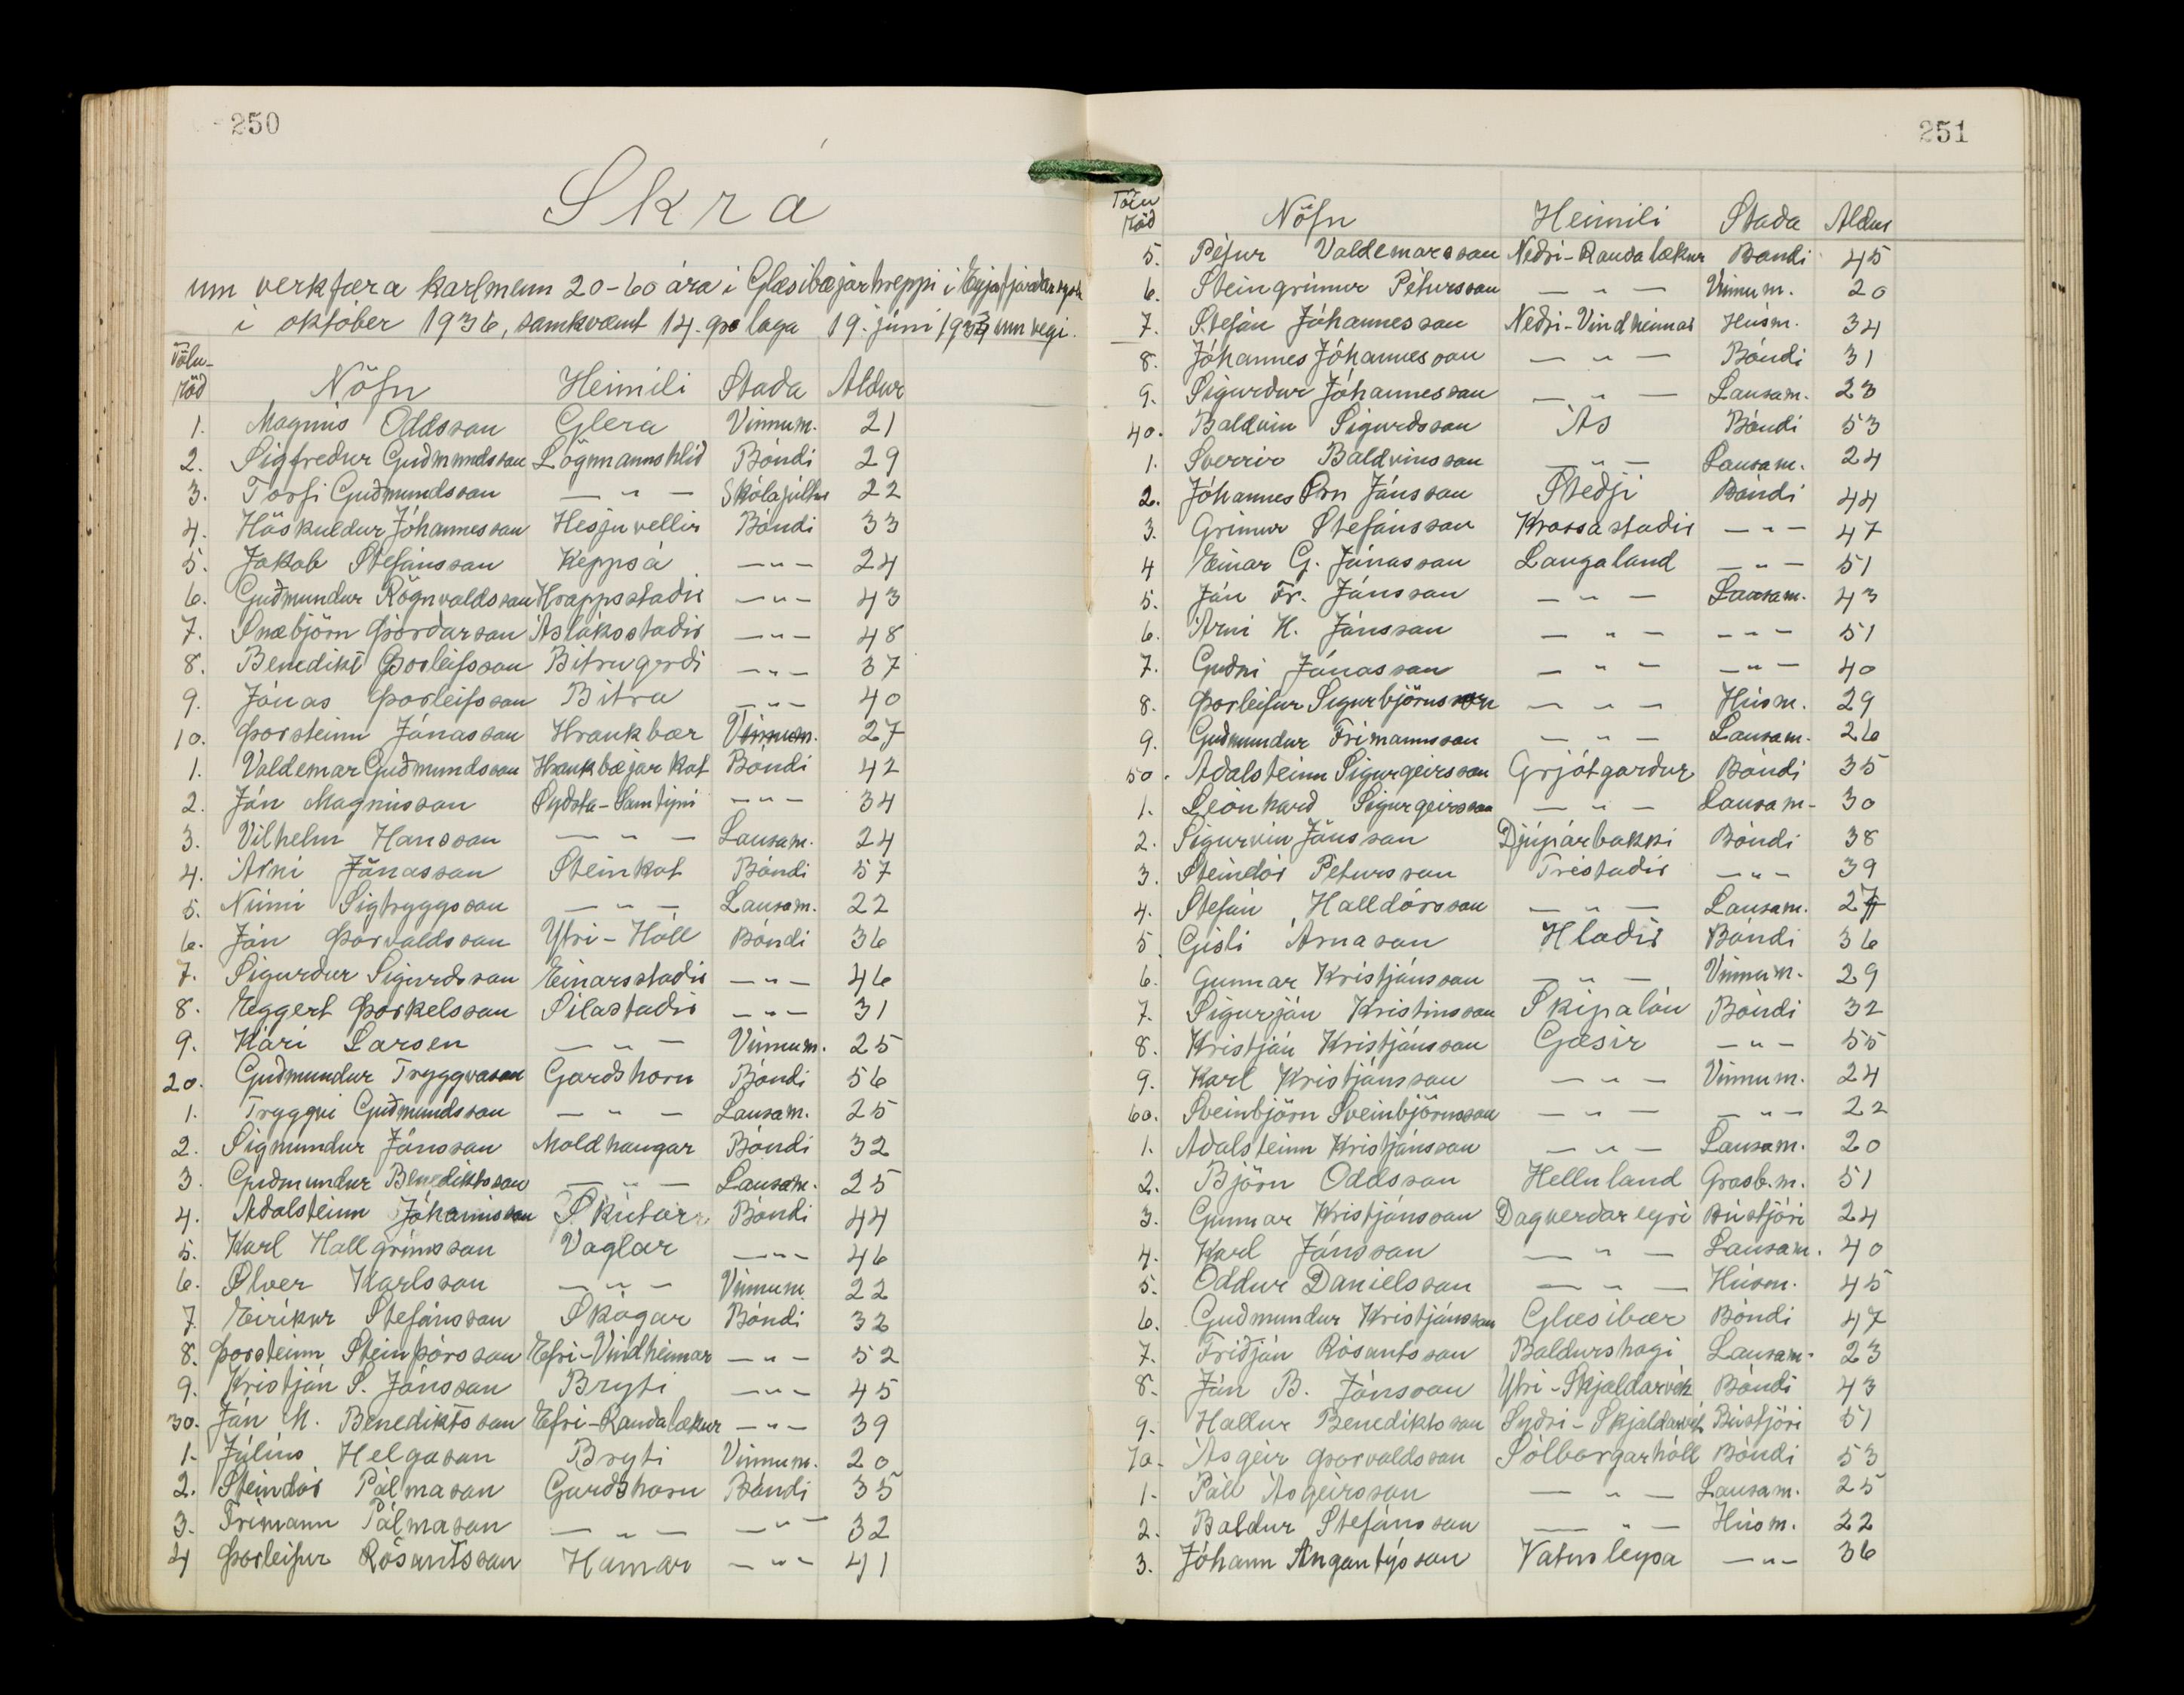 250
Skrá
um verkfæra karlmenn 20-60 ára í Glæsibæjarhreppi í Eyjafjarðarsýslu
í október 1936, samkvæmt 14. gr. laga 19. júní 1933 um vegi.
Tölu-
röð Nöfn Heimili Staða Aldur
1. Magnús Oddsson Glerá Vinnum. 21
2. Sigfreður Guðmundsson Lögmannshlíð Bóndi 29
3. Torfi Guðmundsson — " — Skólapiltur 22
4. Höskuldur Jóhannesson Hesjuvellir Bóndi 33
5. Jakob Stefánsson Keppsá — " — 24
6. Guðmundur Rögnvaldsson Hrappsstaðir — " — 43
7. Snæbjörn Þórðarson Ásláksstaðir — " — 48
8. Benedikt Þorleifsson Bitrugerði — " — 37
9. Jónas Þorleifsson Bitra — " — 40
10. Þorsteinn Jónasson Hraukbær Vinnum. 27
1. Valdemar Guðmundsson Hraukbæjarkot Bóndi 42
2. Jón Magnússon Syðsta-Samtýni — " — 34
3. Vilhelm Hansson — " — Lausam. 24
4. Árni Jónasson Steinkot Bóndi 57
5. Númi Sigtryggsson — " — Lausam. 22
6. Jón Þorvaldsson Ytri-Hóll Bóndi 36
7. Sigurður Sigurdsson Einarsstaðir — " — 46
8. Eggert Þorkelsson Sílastaðir — " — 31
9. Kári Larsen — " — Vinnum. 25
20. Guðmundur Tryggvason Garðshorn Bóndi 56
1. Tryggvi Guðmundsson — " — Lausam. 25
2. Sigmundur Jónsson Moldhaugar Bóndi 32
3. Guðmundur Benediktsson — " — Lausam. 25
4. Aðalsteinn Jóhannsson Skútar Bóndi 44
5. Karl Hallgrímsson Vaglar — " — 46
6. Ölver Karlsson — " — Vinnum. 22
7. Eiríkur Stefánsson Skógar Bóndi 32
8. Þorsteinn Steinþórsson Efri-Vindheimar — " — 52
9. Kristján S. Jónsson Bryti — " — 45
30. Jón M. Benediktsson Efri-Rauðalækur — " — 39
1. Júlíus Helgason Bryti Vinnum. 20
2. Steindór Pálmason Garðshorn Bóndi 35
3. Frímann Pálmason — " — — " — 32
4 Þorleifur Rósantsson Hamar — " — 41
251
Tölu
röð Nöfn Heimili Staða Aldur
5. Pétur Valdemarsson Neðri-Rauðalækur Bóndi 45
6. Steingrímur Pétursson — " — Vinnum. 20
7. Stefán Jóhannesson Neðri-Vindheimar Húsm. 34
8. Jóhannes Jóhannesson — " — Bóndi 31
9. Sigurður Jóhannesson — " — Lausam. 23
40. Baldvin Sigurðsson Ás Bóndi 53
1. Sverrir Baldvinsson — " — Lausam. 24
2. Jóhannes Örn Jónsson Steðji Bóndi 44
3. Grímur Stefánsson Krossastaðir — " — 47
4 Einar G. Jónasson Laugaland — " — 51
5. Jón Fr. Jónsson — " — Lausam. 43
6. Árni H. Jónsson — " — — " — 51
7. Guðni Jónasson — " — — " — 40
8. Þorleifur Sigurbjörnsson — " — Húsm. 29
9. Guðmundur Frímannsson — " — Lausam. 26
50. Aðalsteinn Sigurgeirsson Grjótgarður Bóndi 35
1. Leónhard Sigurgeirsson — " — Lausam. 30
2. Sigurvin Jónsson Djúpárbakki Bóndi 38
3. Steindór Pétursson Tréstaðir — " — 39
4. Stefán Halldórsson — " — Lausam. 27
5. Gísli Árnason Hlaðir Bóndi 36
6. Gunnar Kristjánsson — " — Vinnum. 29
7. Sigurján Kristinsson Skipalón Bóndi 32
8. Kristján Kristjánsson Gæsir — " — 55
9. Karl Kristjánsson — " — Vinnum. 24
60. Sveinbjörn Sveinbjörnsson — " — — " — 22
1. Aðalsteinn Kristjánsson — " — Lausam. 20
2. Björn Oddsson Helluland Grasb.m. 51
3. Gunnar Kristjánsson Dagverðareyri Bústjóri 24
4. Karl Jónsson — " — Lausam. 40
5. Oddur Daníelsson — " — Húsm. 45
6. Guðmundur Kristjánsson Glæsibær Bóndi 47
7. Friðján Rósantsson Baldurshagi Lausam. 23
8. Jón B. Jónsson Ytri-Skjaldarvík Bóndi 43
9. Hallur Benediktsson Syðri-Skjaldarvík Bústjóri 51
70. Ásgeir Þorvaldsson Sólborgarhóll Bóndi 53
1. Páll Ásgeirsson — " — Lausam. 25
2. Baldur Stefánsson — " — Húsm. 22
3. Jóhann Angantýsson Vatnsleysa — " — 36